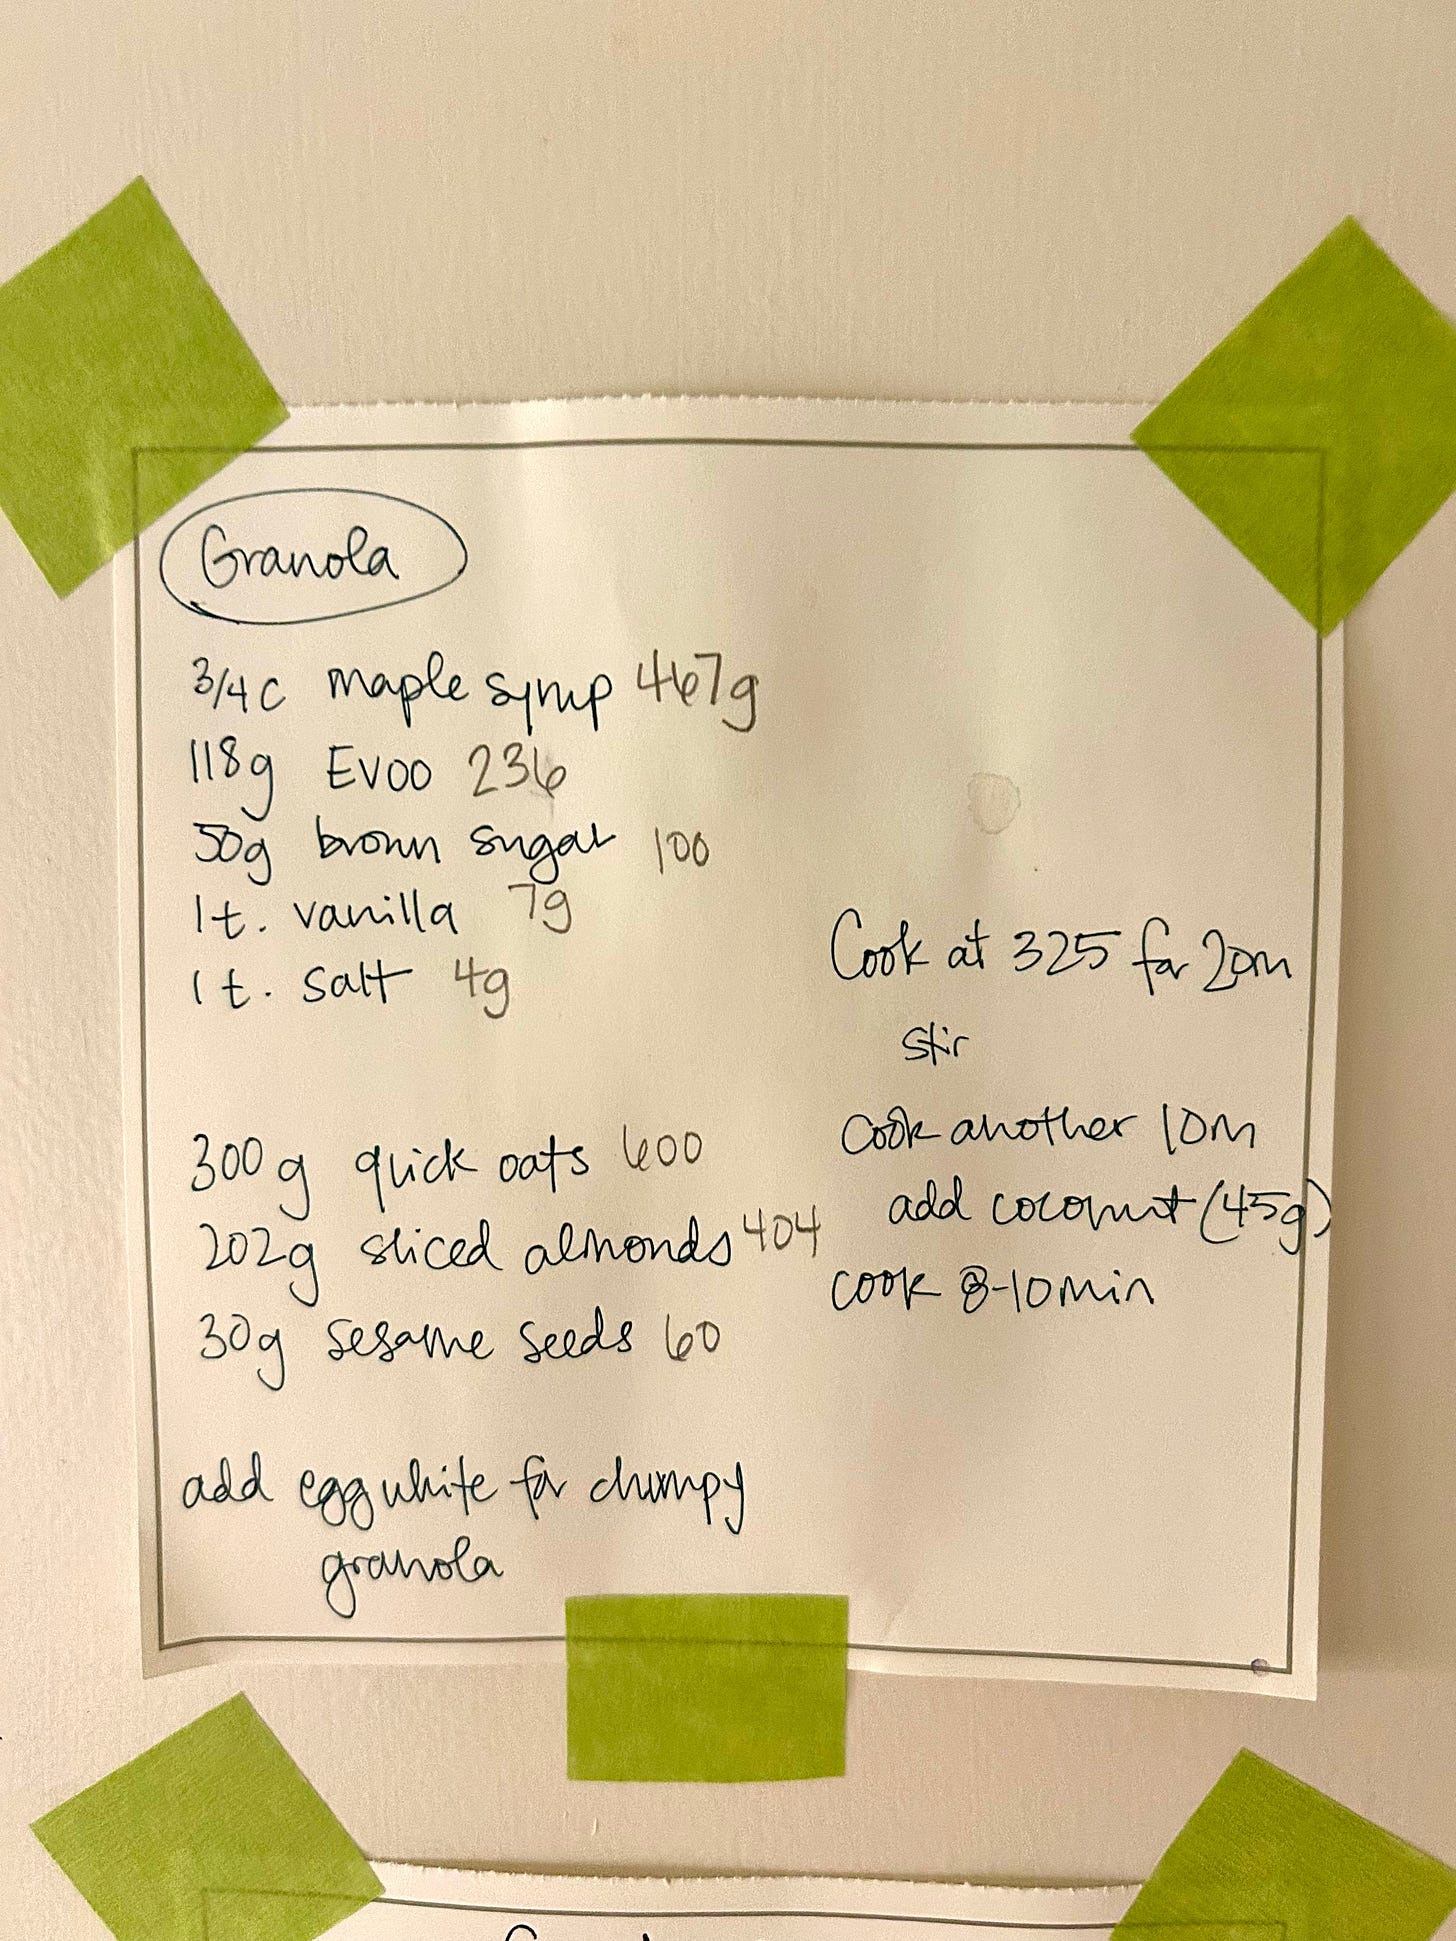 Granola
3/4 c maple syrup 467g
118g EVOO 236
50g brown sugar 100
1 t. vanilla 7g
1 t. salt 4g
300g quick oats 600
202g sliced almonds 404
30g sesame seeds 60
add egg white for clumpy
granola
Cook at 325 for 20m
stir
Cook another 10m
add coconut (45g)
cook 8-10 min